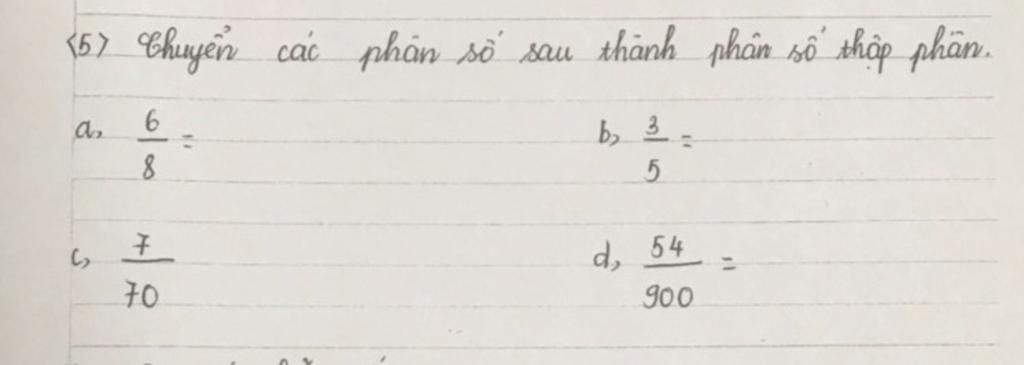 (5) Chuyển các phân số sau thành phân số thập phân.
a, 6/8 = b, 3/5 =
c, 7/70 d, 54/900 =